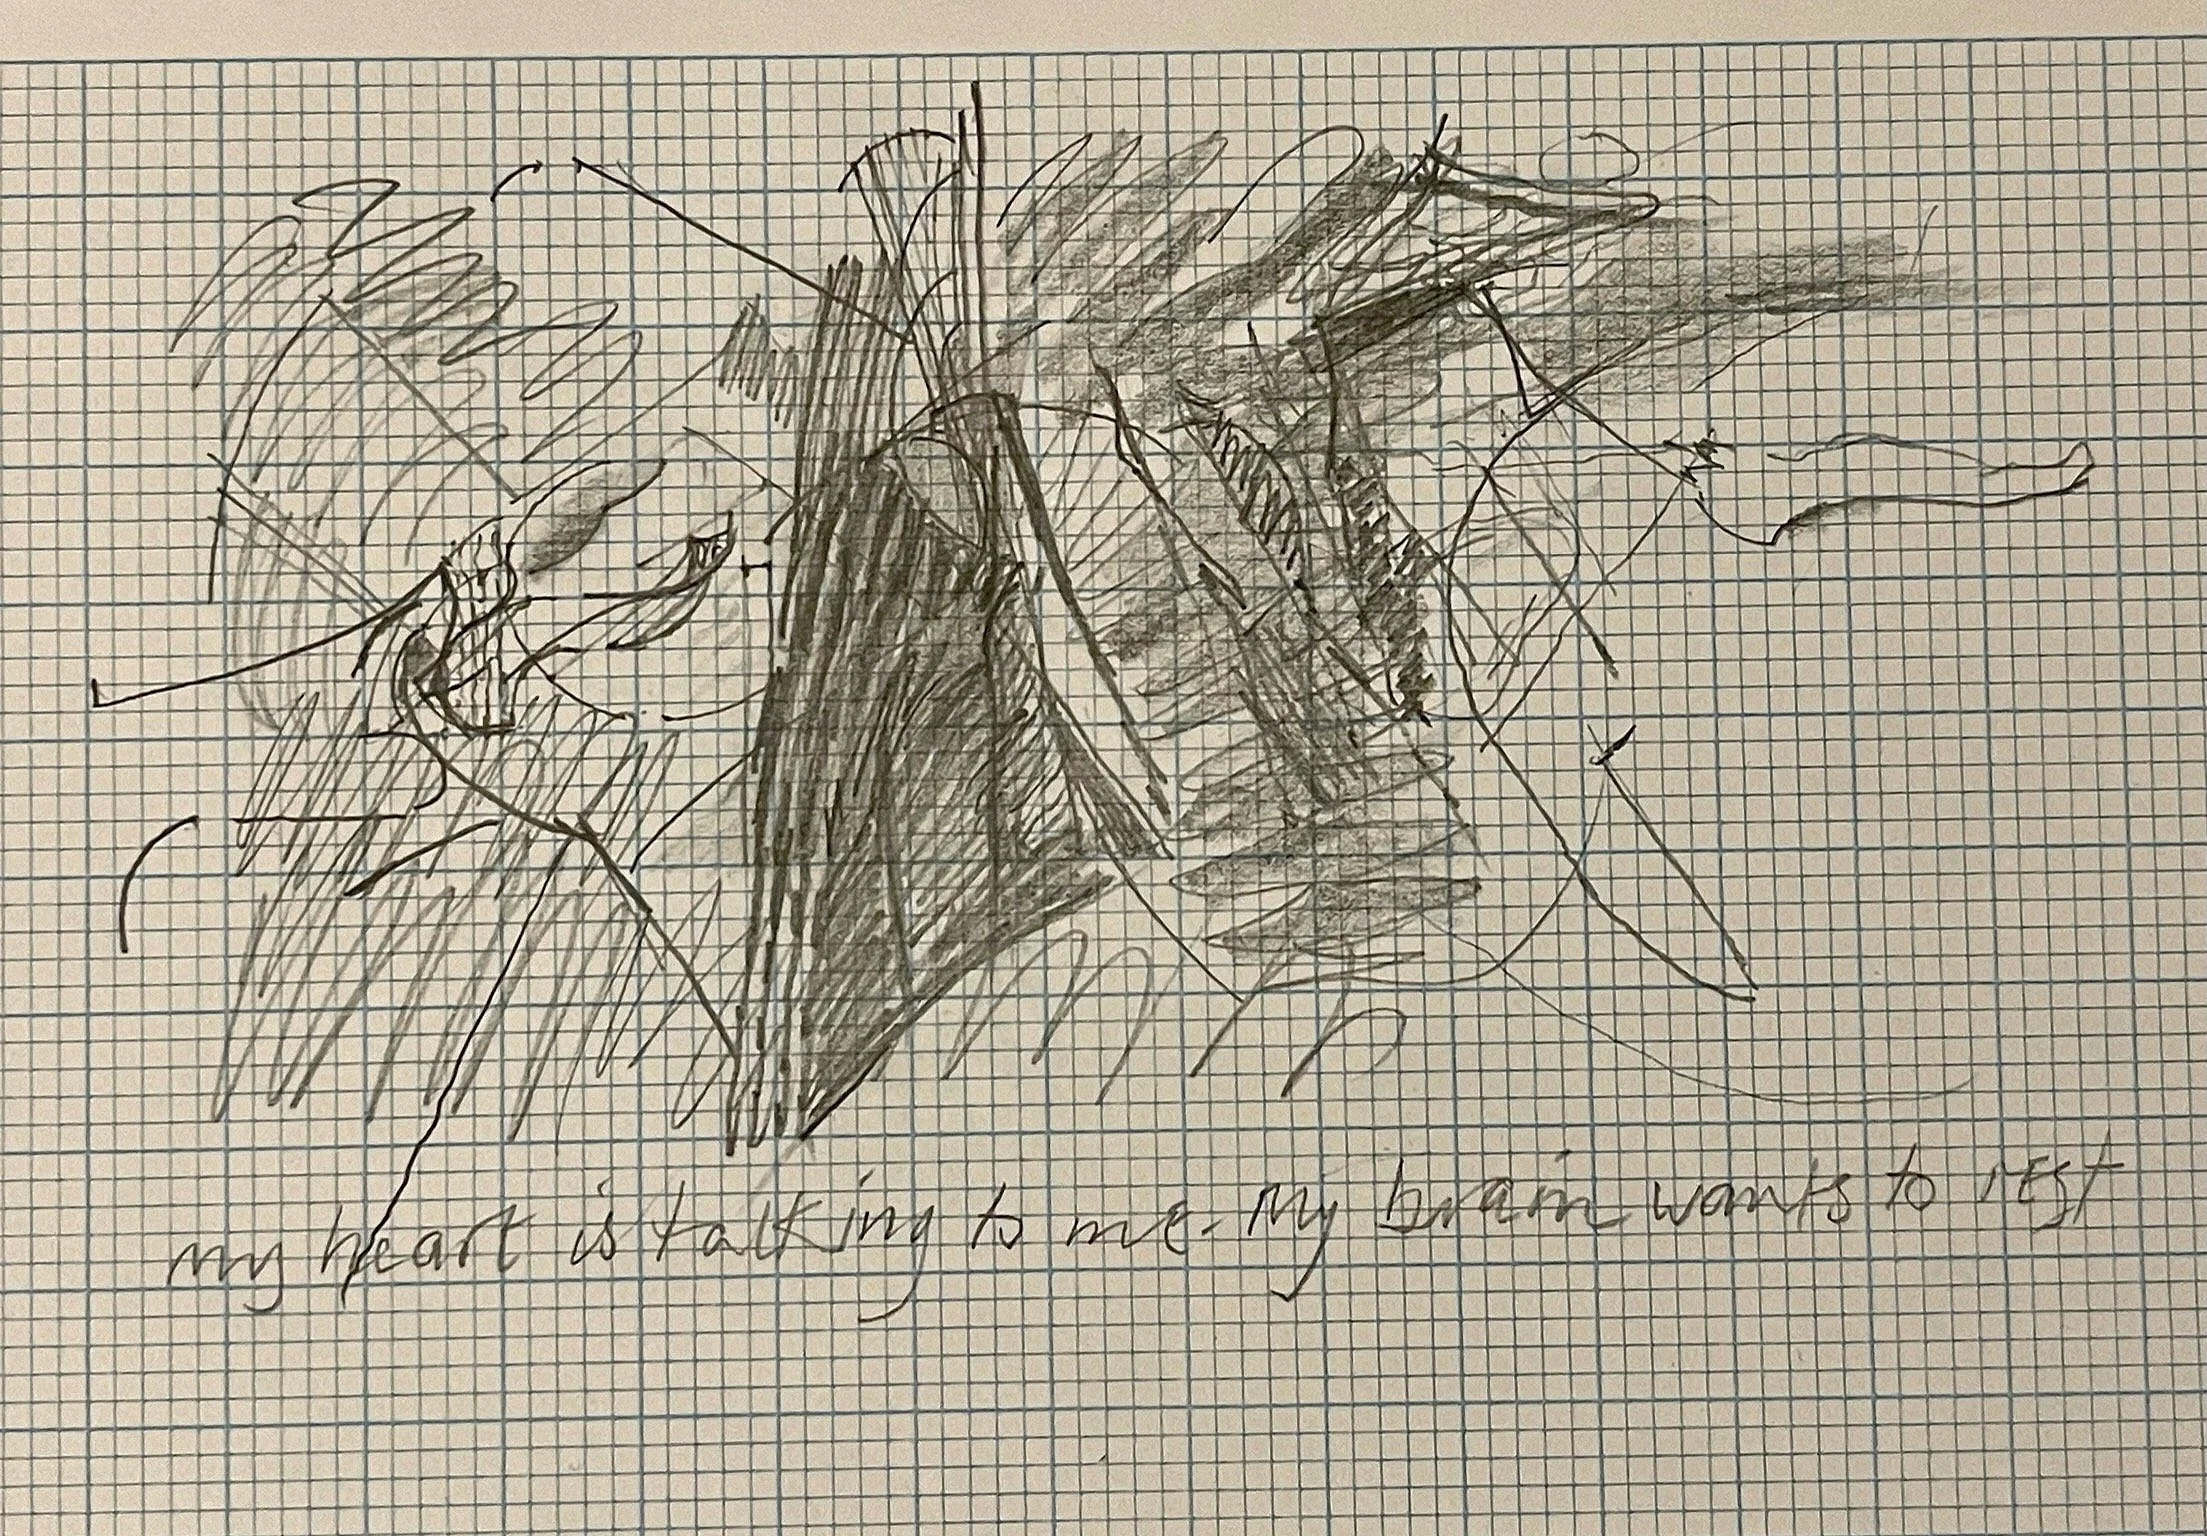 my heart is talking to me. My brain wants to rest